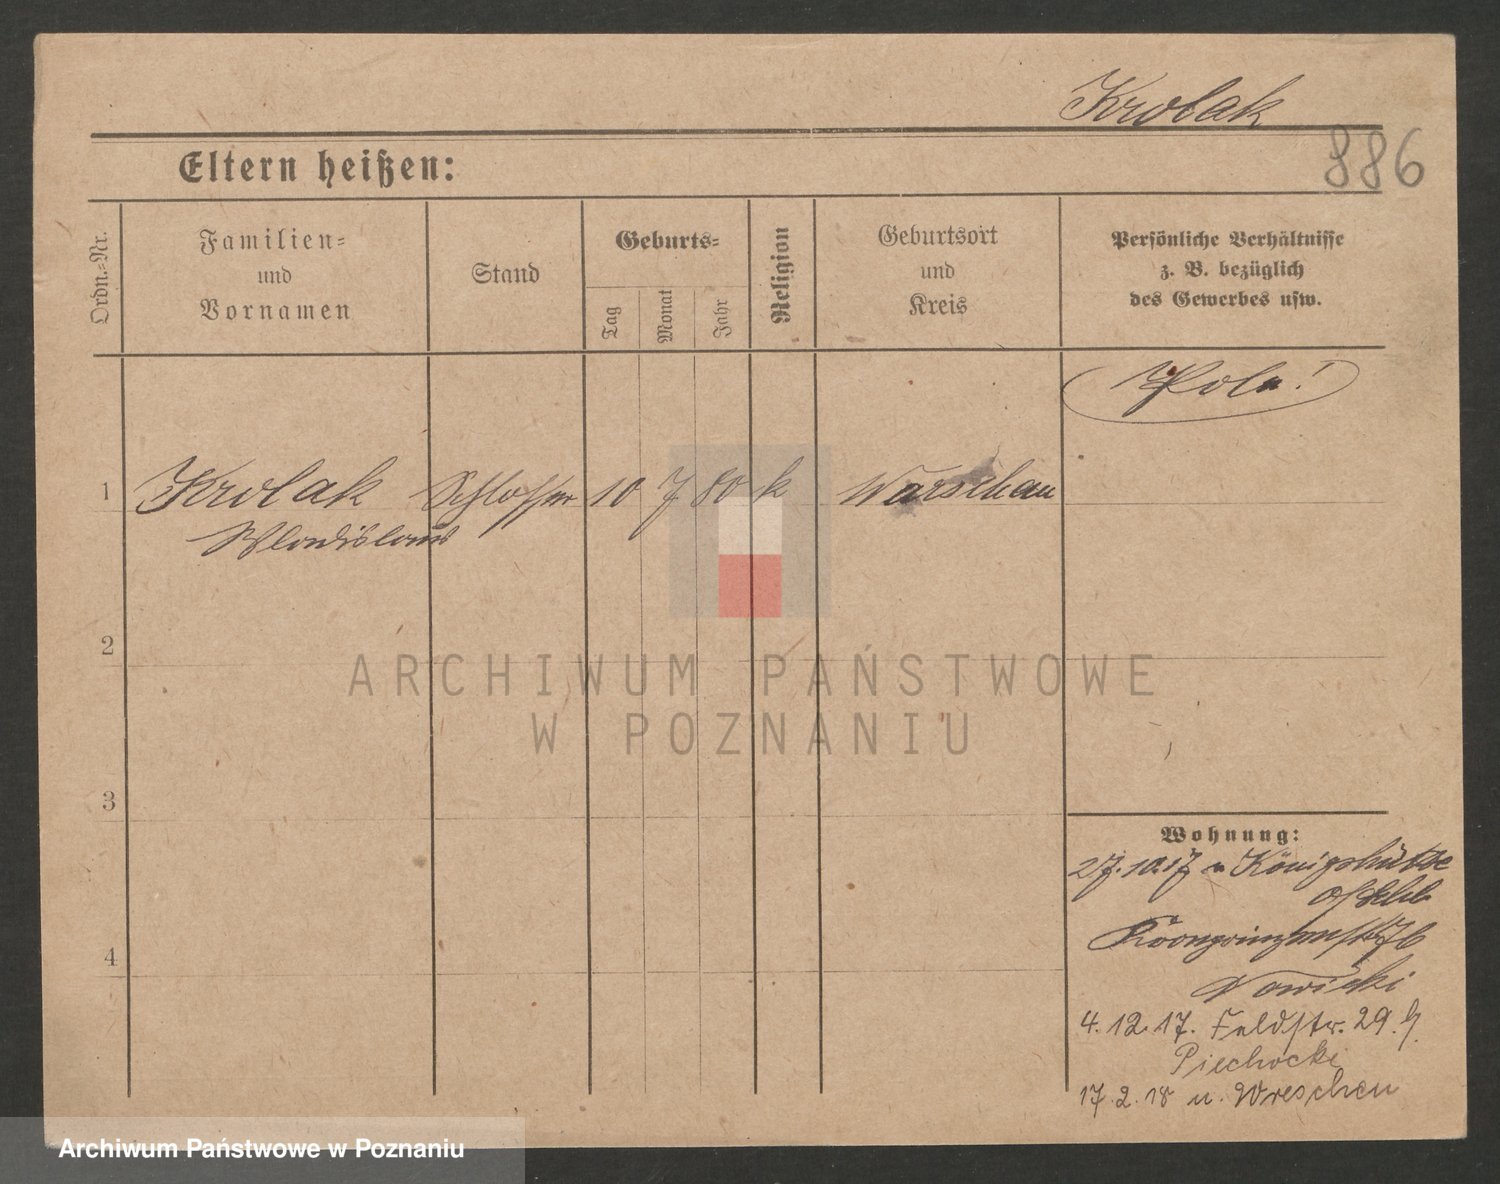 Krolak
886
Eltern heißen:
Ordn.=Nr.
Familien=
und
Vornamen
Stand
Geburts=
Tag
Monat
Jahr
Religion
Geburtsort
und
Kreis
Persönliche Verhältnisse
z. B. bezüglich
des Gewerbes usw.
Pole!
1 Krolak Schlosser 10 7 80 k Warschau
Wladislaus
2
3
4
ARCHIWUM PAŃSTWOWE
W POZNANIU
Wohnung:
27.10.17 n Königshütte
O/Schl.
Kronprinzenstr
Nowicki
4.12.17. Feldstr. 29.
Piechocki
17.2.18 n. Wreschen
Archiwum Państwowe w Poznaniu